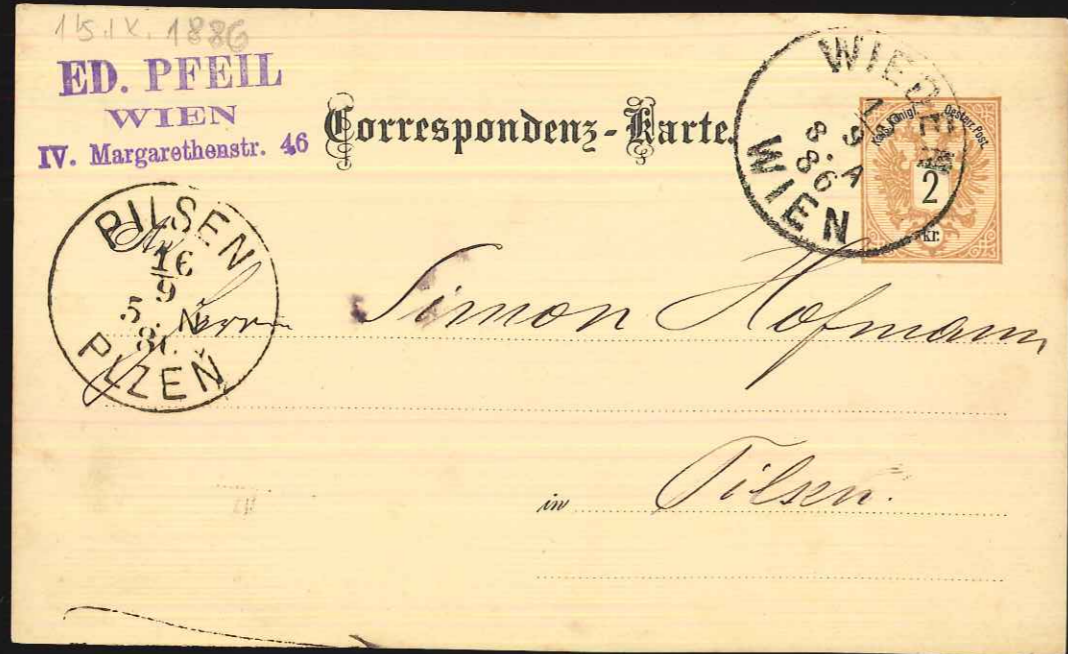 15.IX.1886
ED. PFEIL
WIEN
IV. Margarethenstr. 46
Correspondenz-Karte.
WIEN
9
8. A
86
Kais. Königl. Oesterr. Post.
2
kr.
PILSEN
16
9
5 N
PLZEŇ
An
Herrn Simon Hofmann
in Pilsen.